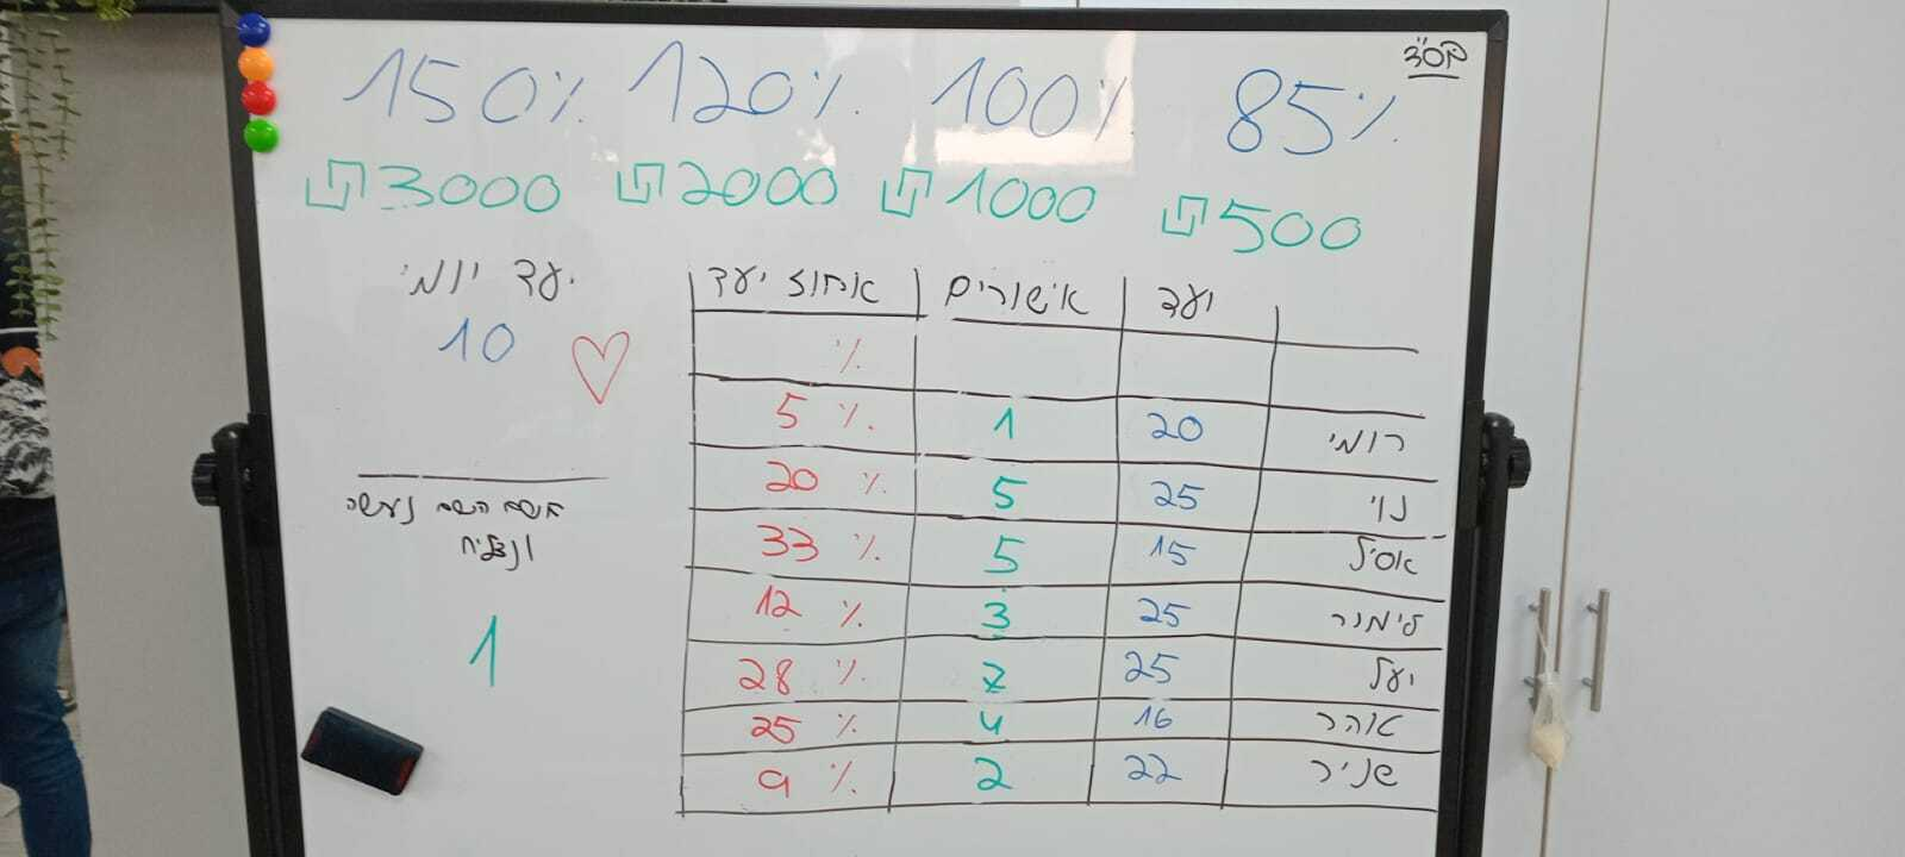 בס"ד
85% 100% 120% 150%
₪500 ₪1000 ₪2000 ₪3000
יעד אישורים אחוז יעד
%
רומי 20 1 5%
נוי 25 5 20%
אסיל 15 5 33%
לימור 25 3 12%
יעל 25 7 28%
אוהר 16 4 25%
שניר 22 2 9%
יעד יומי
10
השם נעשה
ונצליח
1